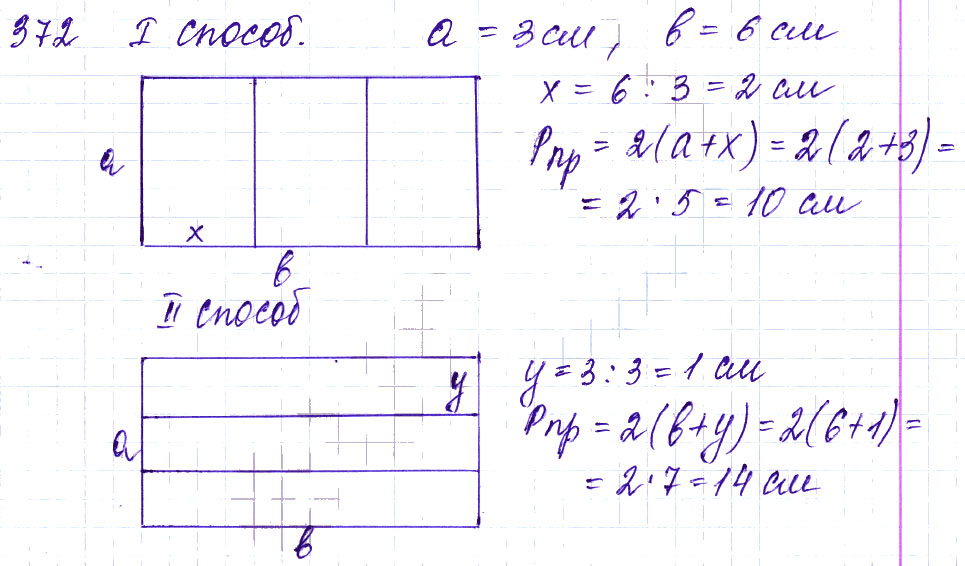 372 I способ. a = 3 см, в = 6 см
x = 6 : 3 = 2 см
a
Pпр = 2(a+x) = 2(2+3) =
= 2 · 5 = 10 см
x
в
II способ
y = 3 : 3 = 1 см
y
Pпр = 2(в+y) = 2(6+1) =
a
= 2 · 7 = 14 см
в